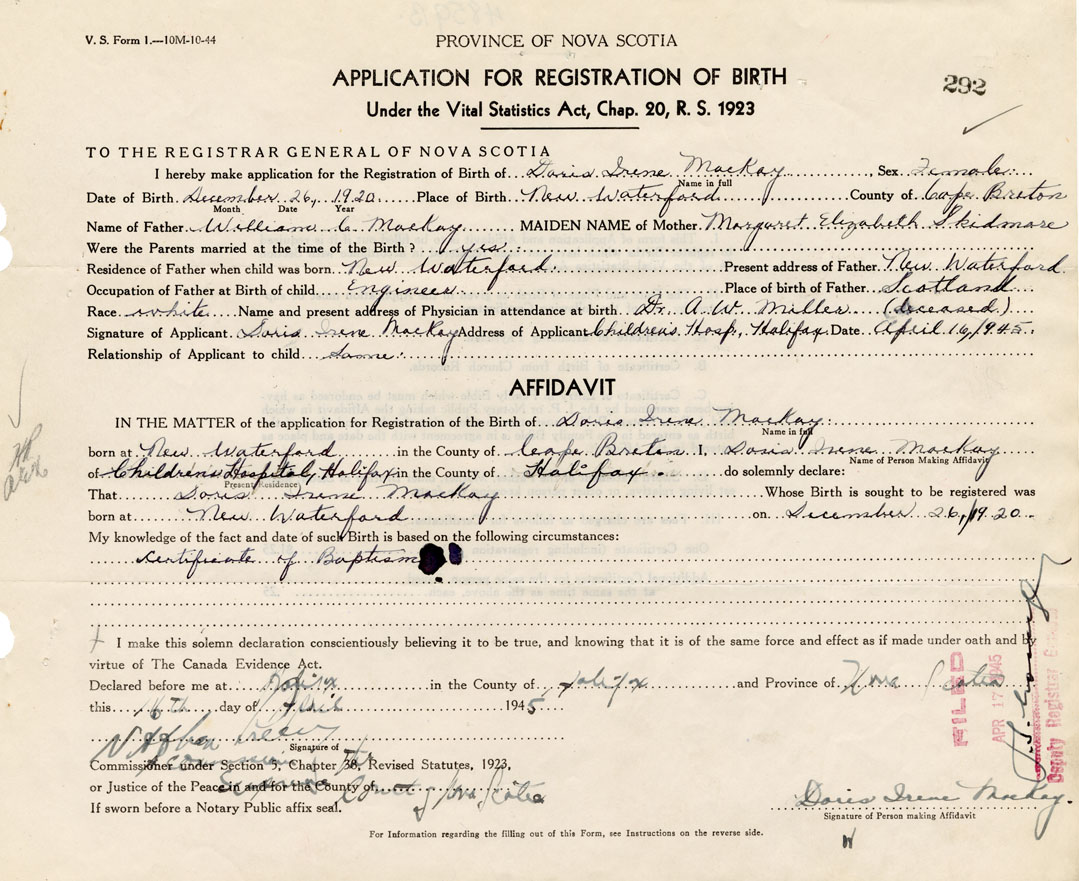 V. S. Form 1.—10M-10-44
PROVINCE OF NOVA SCOTIA
292
APPLICATION FOR REGISTRATION OF BIRTH
Under the Vital Statistics Act, Chap. 20, R. S. 1923
TO THE REGISTRAR GENERAL OF NOVA SCOTIA
I hereby make application for the Registration of Birth of Doris Irene MacKay, Sex Female
Name in full
Date of Birth December 26, 1920 Place of Birth New Waterford County of Cape Breton
Month Date Year
Name of Father William C. MacKay MAIDEN NAME of Mother Margaret Elizabeth Skidmore
Were the Parents married at the time of the Birth? yes
Residence of Father when child was born New Waterford Present address of Father New Waterford
Occupation of Father at Birth of child Engineer Place of birth of Father Scotland
Race white Name and present address of Physician in attendance at birth Dr. A. W. Miller (deceased)
Signature of Applicant Doris Irene MacKay Address of Applicant Children's Hosp., Halifax Date April 16, 1945.
Relationship of Applicant to child Same
AFFIDAVIT
IN THE MATTER of the application for Registration of the Birth of Doris Irene MacKay
Name in full
born at New Waterford in the County of Cape Breton I, Doris Irene MacKay
Name of Person Making Affidavit
of Children's Hospital, Halifax in the County of Halifax. do solemnly declare:
Present Residence
That Doris Irene MacKay Whose Birth is sought to be registered was
born at New Waterford on December 26, 1920
My knowledge of the fact and date of such Birth is based on the following circumstances:
Certificate of Baptism
I make this solemn declaration conscientiously believing it to be true, and knowing that it is of the same force and effect as if made under oath and by
virtue of The Canada Evidence Act.
Declared before me at Halifax in the County of Halifax and Province of Nova Scotia
this 16th day of April 1945
Signature of
Commissioner under Section 5, Chapter 38, Revised Statutes, 1923,
or Justice of the Peace in and for the County of
Court of Nova Scotia
If sworn before a Notary Public affix seal.
FILED
APR 17 1945
Deputy Registrar
Doris Irene MacKay.
Signature of Person making Affidavit
For Information regarding the filling out of this Form, see Instructions on the reverse side.